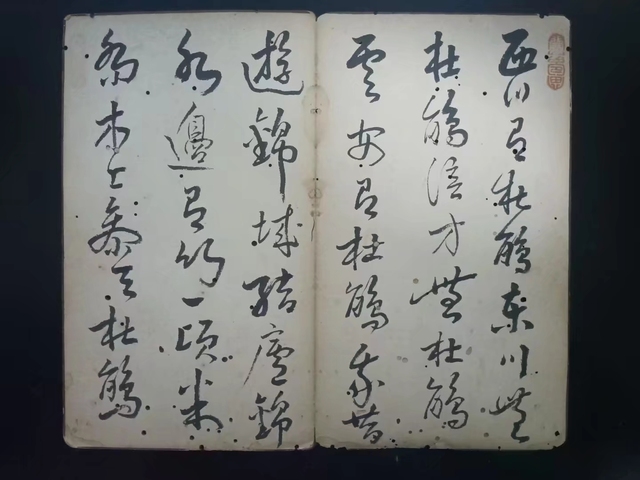 西川有杜鵑東川無
杜鵑涪万無杜鵑
雲安有杜鵑我昔
遊錦城結廬錦
水邊有竹一頃余
喬木上參天杜鵑